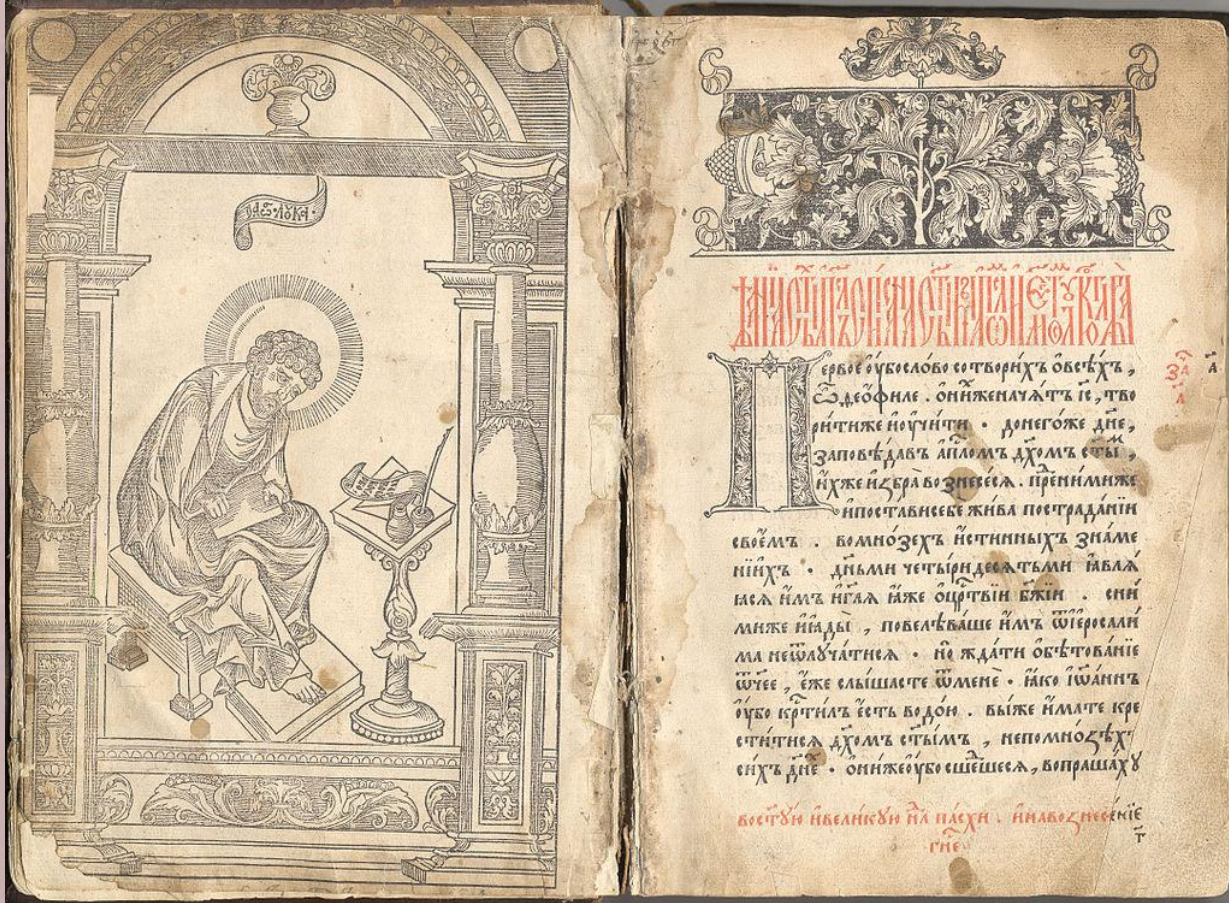 ѻ҆аⷭ҇ лꙋка·
Первое ѹ҆бо слово сотворихъ ѻ҆ всѣхъ,
ѽ деѻ҆филе . ѻ҆ ниже начатъ і҆с҃, тво
ри́ти же и҆ ѹ҆чи́ти · до негоже дн҃е,
заповѣдавъ а҆пⷭ҇ломъ дх҃омъ ст҃ы́мъ,
и҆хже и҆збра̀ вознесеся . пред ними же
и҆ поставѝ себе жива по страданїи
своемъ . во мно́зехъ и҆стинныхъ зна́ме
нїихъ · дньми четы́ридесѧтьми ꙗ҆влѧ́
ѧсѧ и҆мъ и҆ гл҃ѧ ꙗ҆же ѻ҆ цр҃твїи бж҃їи . с ни
миже и҆ ꙗ҆ды̀ , повелѣваше и҆мъ ѿ і҆еросали
ма не ѿлуча́тисѧ · но жда́ти ѻ҆бѣтованїе
ѿчее , е҆же слышасте ѿ менѐ · ꙗ҆ко і҆ѡ҆а́ннъ
ѹ҆бо крⷭ҇тилъ є҆сть водо́ю . вы́же и҆мате кре
сти́тисѧ дх҃омъ ст҃ы́мъ , не по мно́ѕѣхъ
сихъ дн҃е · ѻ҆ниже ѹ҆бо сше́дшесѧ, вопраша́хꙋ
во ст҃ꙋю и҆ великꙋю нлⷣ пасхи . и҆ на вознесе́нїе
гн҃е
за҃
а҃